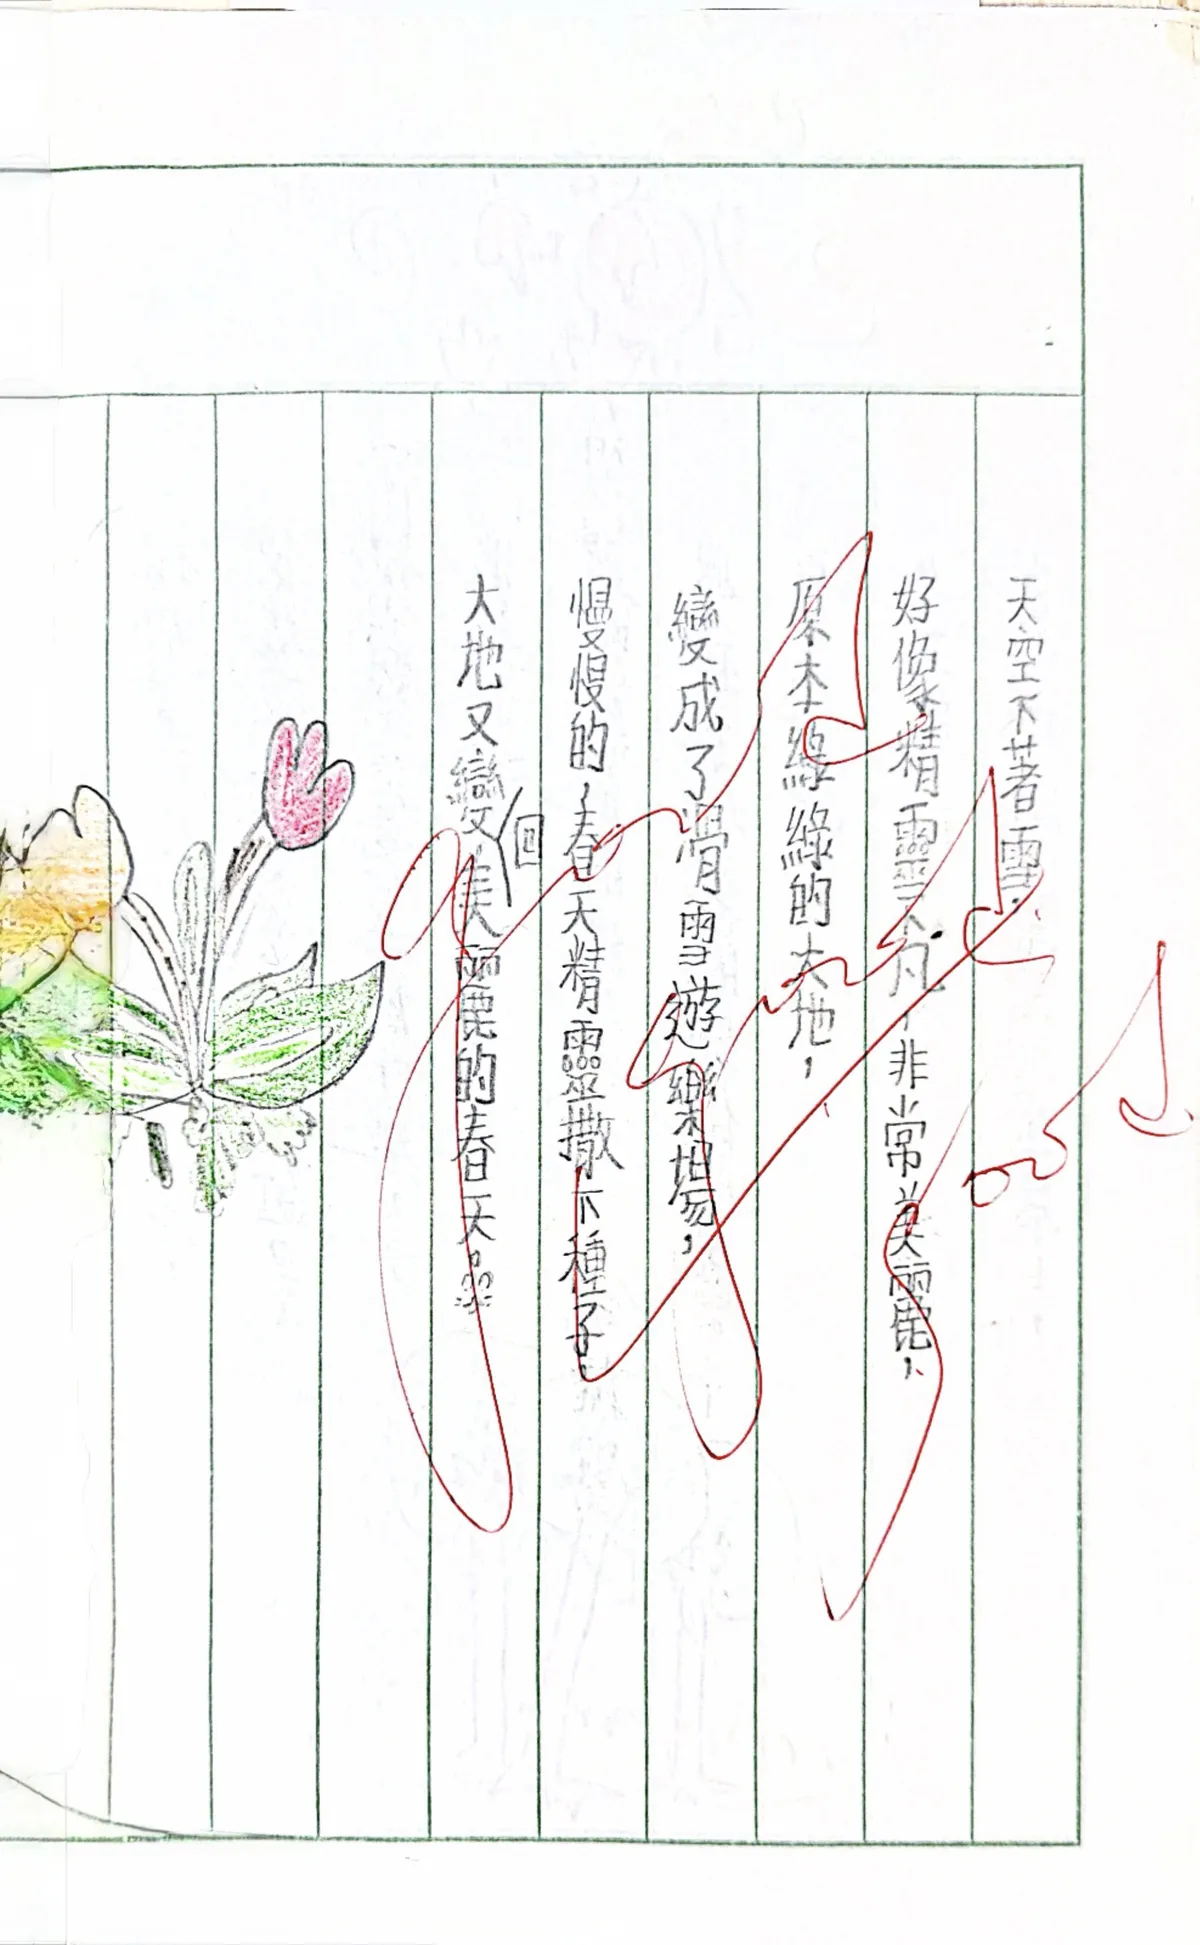 天空下著雪，
好像精靈下凡，非常美麗，
原本綠綠的大地，
變成了滑雪遊樂場，
慢慢的，春天精靈撒下種子，
大地又變回美麗的春天。